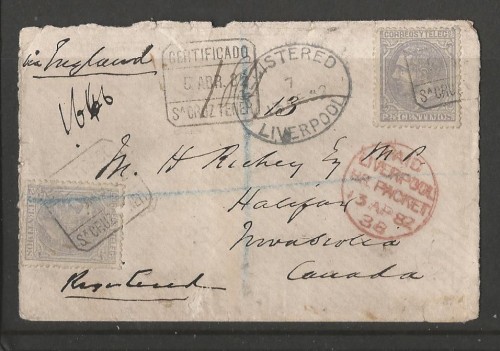 via England
1646
CERTIFICADO
5 ABR. 82
Sᴬ CRUZ TENER
REGISTERED
7
82
LIVERPOOL
13
CORREOS Y TELEG
25 CENTIMOS
Sᴬ CRUZ
M. H. Richey Esq MP
Halifax
Novascotia
Canada
PAID
LIVERPOOL
BR. PACKET
13 AP 82
38
Sᴬ CRUZ TENER
Registered